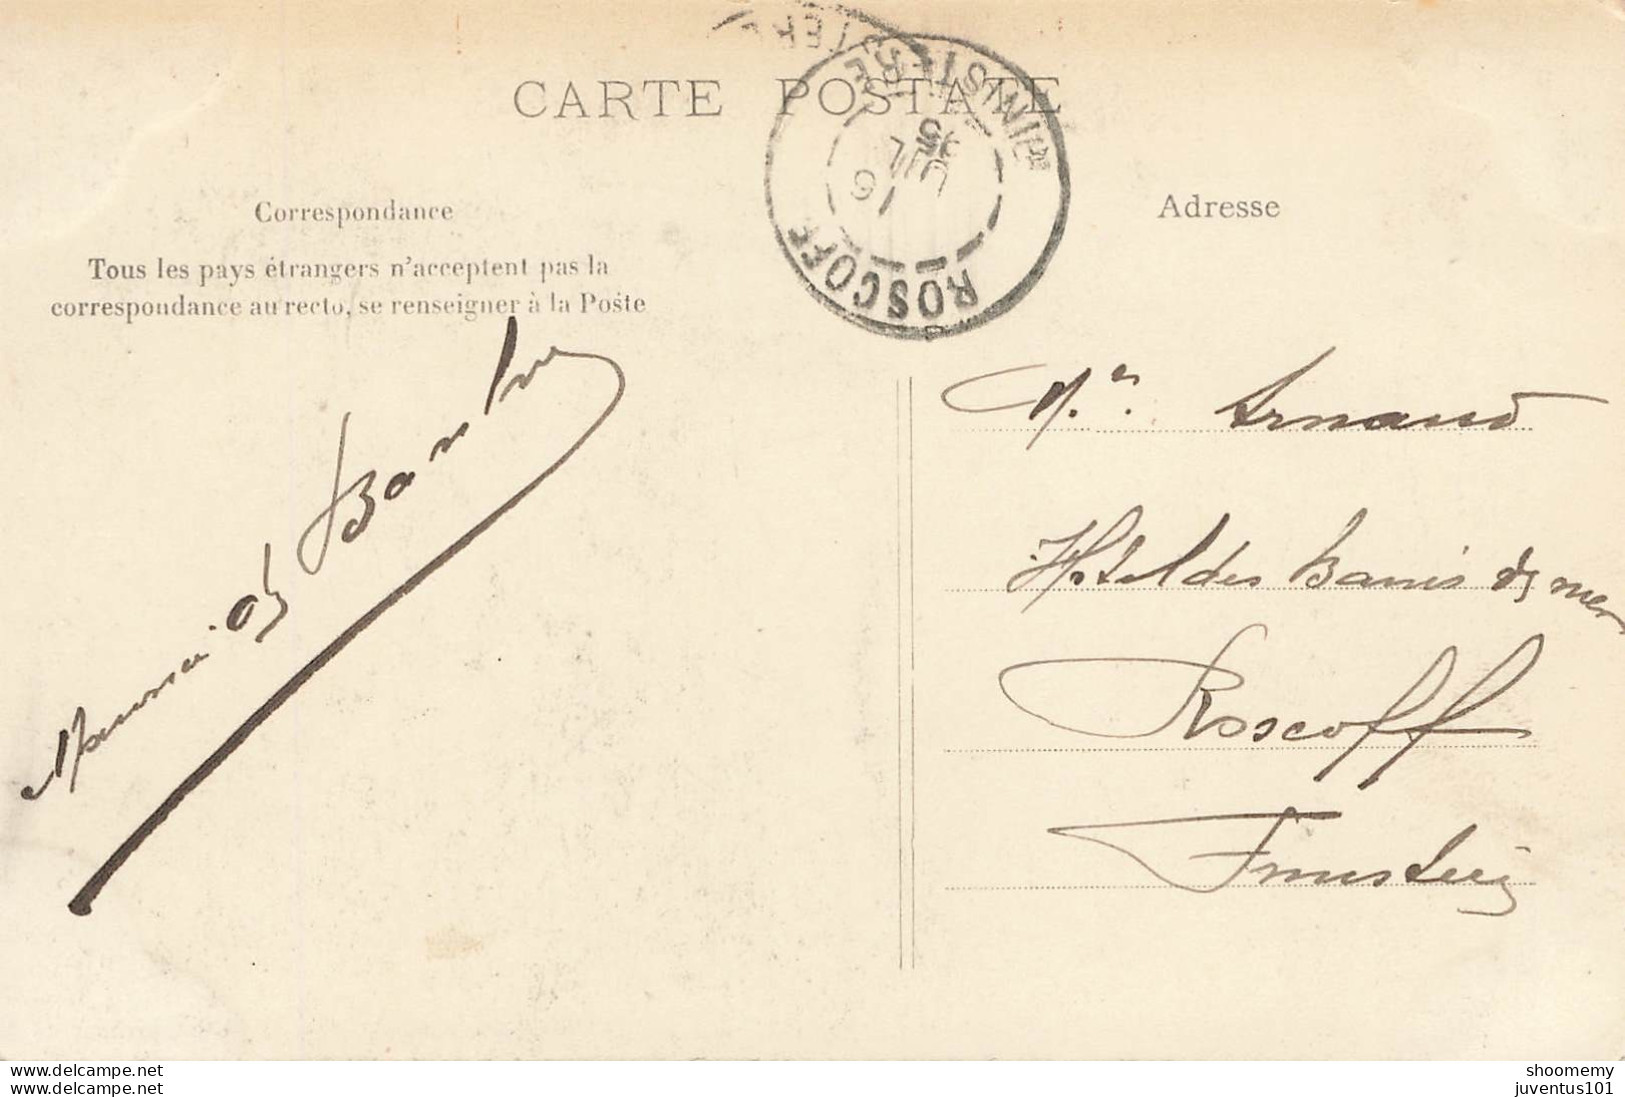 CARTE POSTALE
Correspondance
Tous les pays étrangers n'acceptent pas la
correspondance au recto, se renseigner à la Poste
Adresse
ROSCOFF FINISTERE
6
JUIL
05
Arnaud
Hotel des Bains de mer
Roscoff
Finistère
www.delcampe.net
www.delcampe.net
shoomemy
juventus101